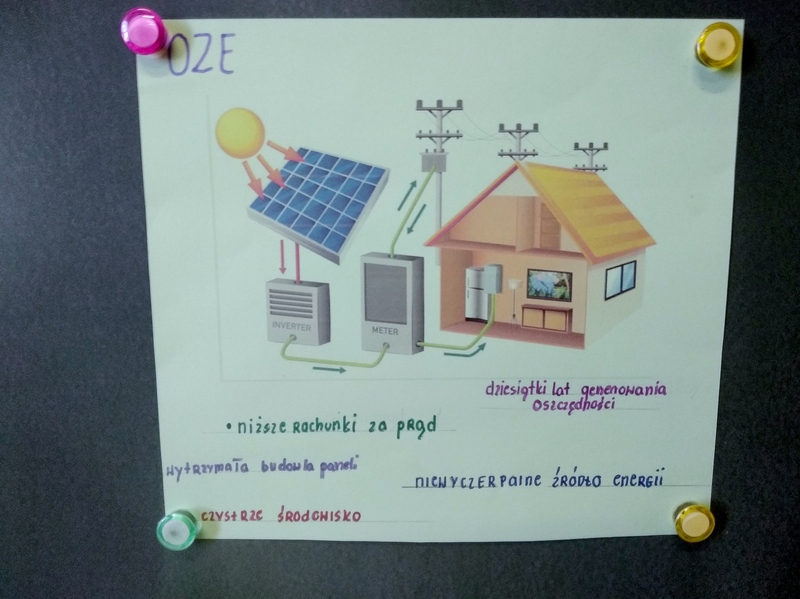 OZE
INVERTER
METER
dziesiątki lat generowania
oszczędności
• niższe rachunki za prąd
wytrzymała budowla paneli
niewyczerpalne źródło energii
czystrze środowisko